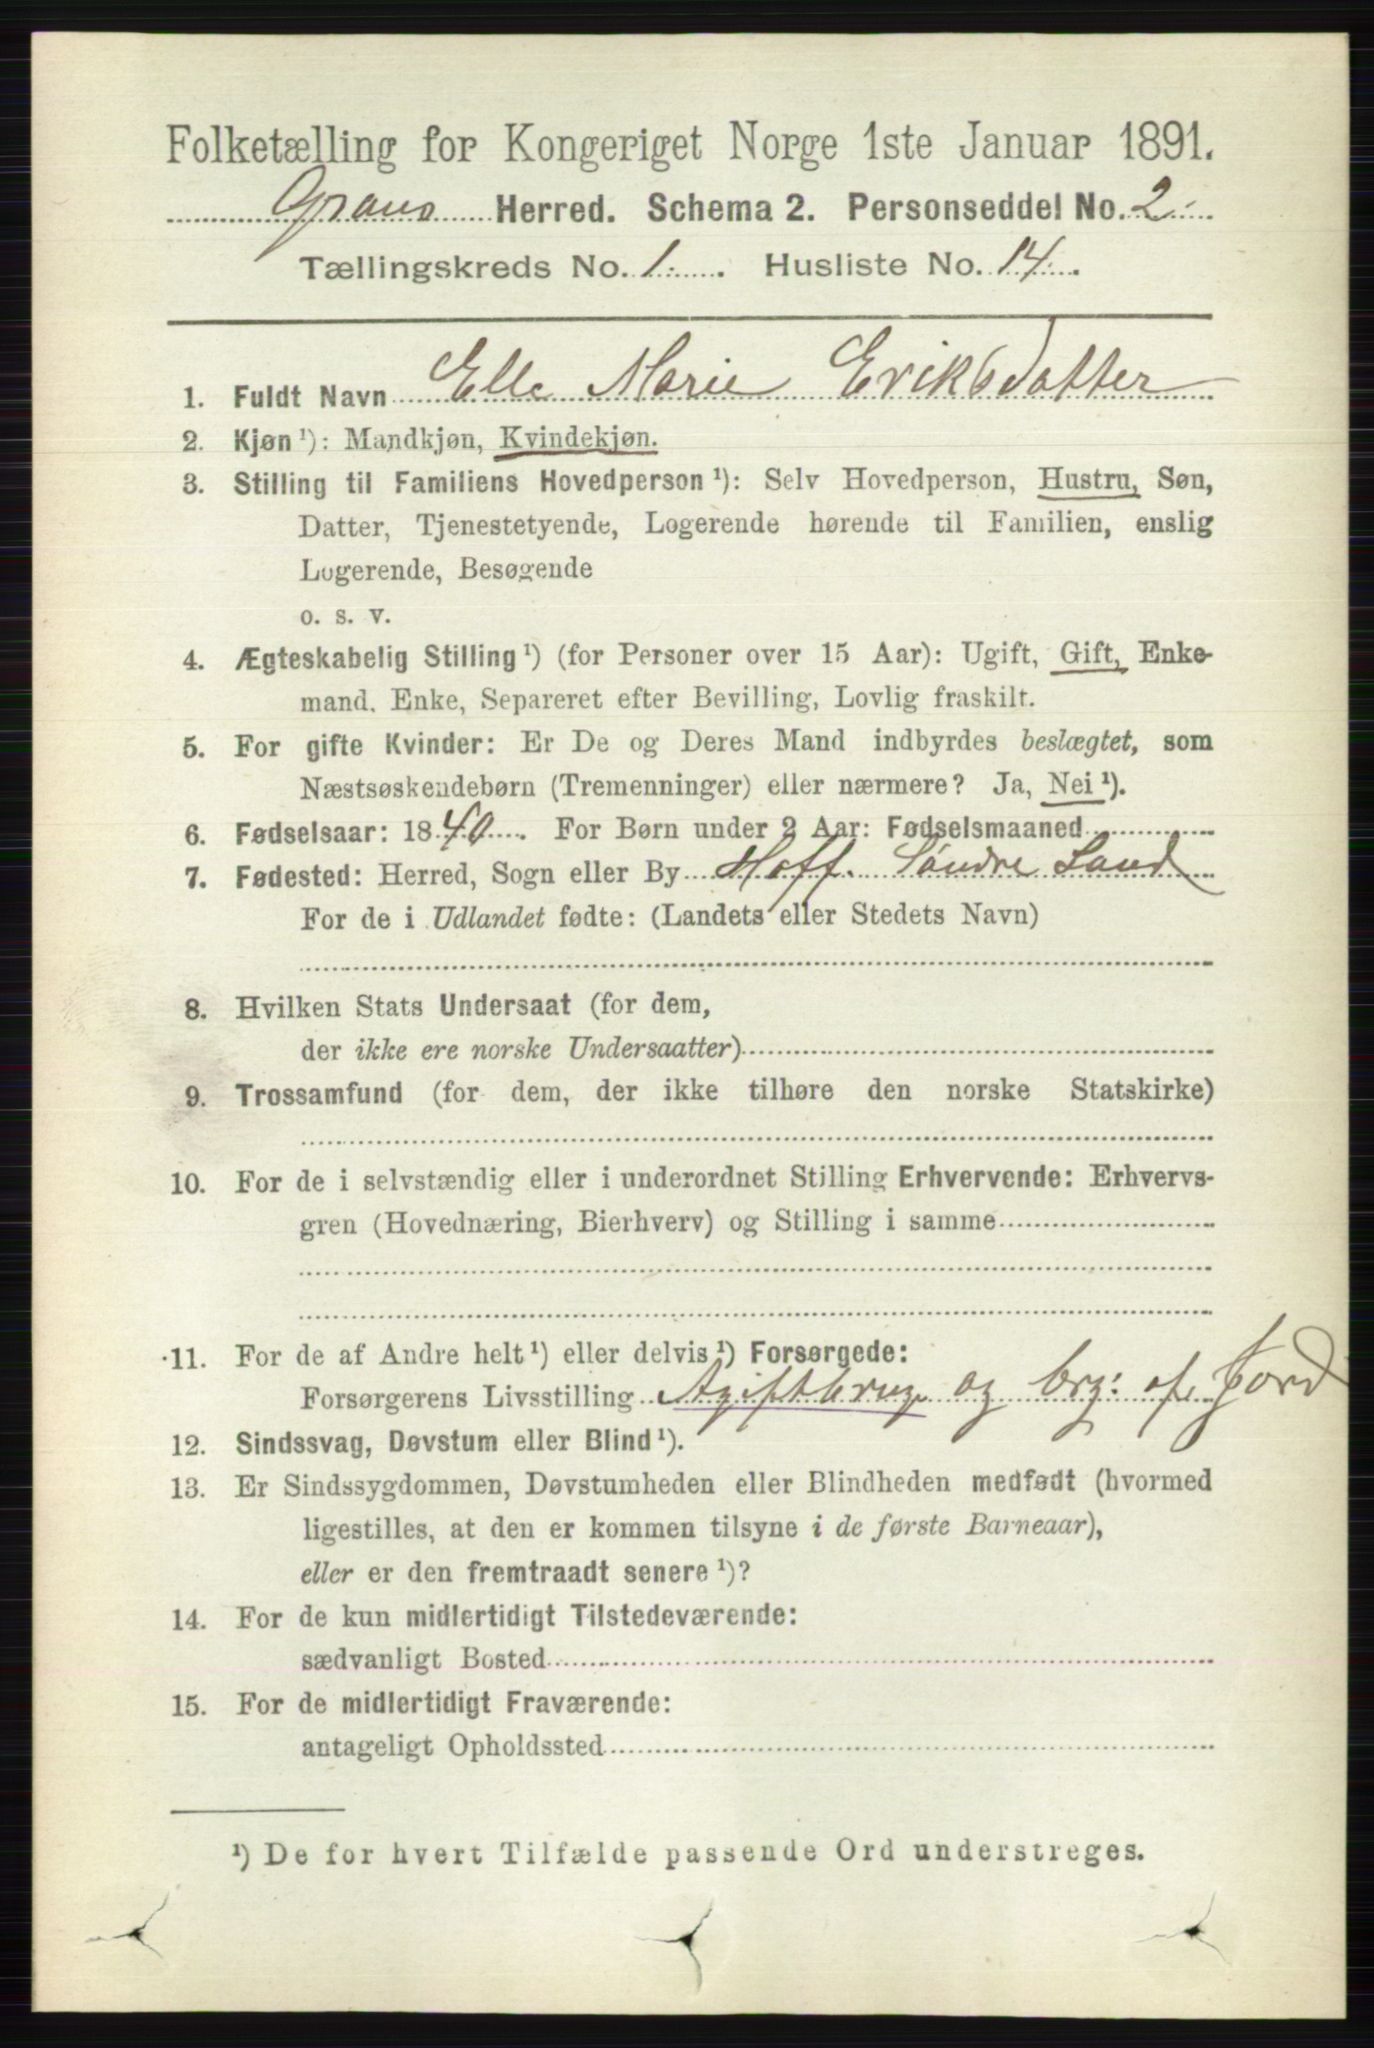 Folketælling for Kongeriget Norge 1ste Januar 1891.
Grans Herred. Schema 2. Personseddel No. 2
Tællingskreds No. 1. Husliste No. 14.
1. Fuldt Navn Elle Marie Eriksdatter
2. Kjøn¹): Mandkjøn, Kvindekjøn.
3. Stilling til Familiens Hovedperson¹): Selv Hovedperson, Hustru, Søn,
Datter, Tjenestetyende, Logerende hørende til Familien, enslig
Logerende, Besøgende
o. s. v.
4. Ægteskabelig Stilling¹) (for Personer over 15 Aar): Ugift, Gift, Enke-
mand, Enke, Separeret efter Bevilling, Lovlig fraskilt.
5. For gifte Kvinder: Er De og Deres Mand indbyrdes beslægtet, som
Næstsøskendebørn (Tremenninger) eller nærmere? Ja, Nei¹).
6. Fødselsaar: 1840. For Børn under 2 Aar: Fødselsmaaned
7. Fødested: Herred, Sogn eller By Hoff. Søndre Land
For de i Udlandet fødte: (Landets eller Stedets Navn)
8. Hvilken Stats Undersaat (for dem,
der ikke ere norske Undersaatter)
9. Trossamfund (for dem, der ikke tilhøre den norske Statskirke)
10. For de i selvstændig eller i underordnet Stilling Erhvervende: Erhvervs-
gren (Hovednæring, Bierhverv) og Stilling i samme
11. For de af Andre helt¹) eller delvis¹) Forsørgede:
Forsørgerens Livsstilling og brg: af Jord
12. Sindssvag, Døvstum eller Blind¹).
13. Er Sindssygdommen, Døvstumheden eller Blindheden medfødt (hvormed
ligestilles, at den er kommen tilsyne i de første Barneaar),
eller er den fremtraadt senere¹)?
14. For de kun midlertidigt Tilstedeværende:
sædvanligt Bosted
15. For de midlertidigt Fraværende:
antageligt Opholdssted
¹) De for hvert Tilfælde passende Ord understreges.